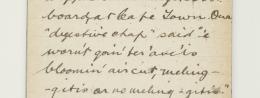 board, at Cape Town. Our
"dyestive chap" said "e
worn't goin' ter 'ave 'is
bloomin' air cut mening-
-gitis or no mening-gitis."